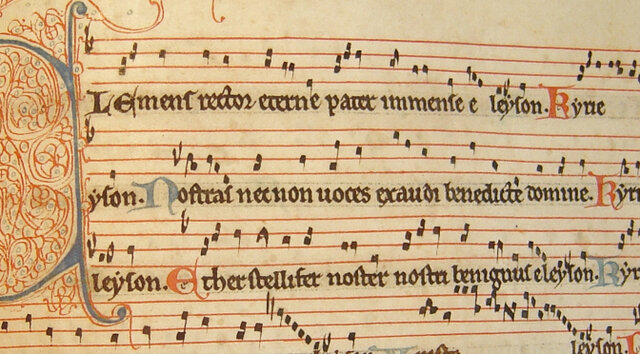 CLemens rector eterne pater immense e leyson. Kyrie
yson. Nostras necnon uoces exaudi benedicte domine. Kyri
leyson. Ether stellifer noster nostri benignus eleyson. Kyr
leyson.